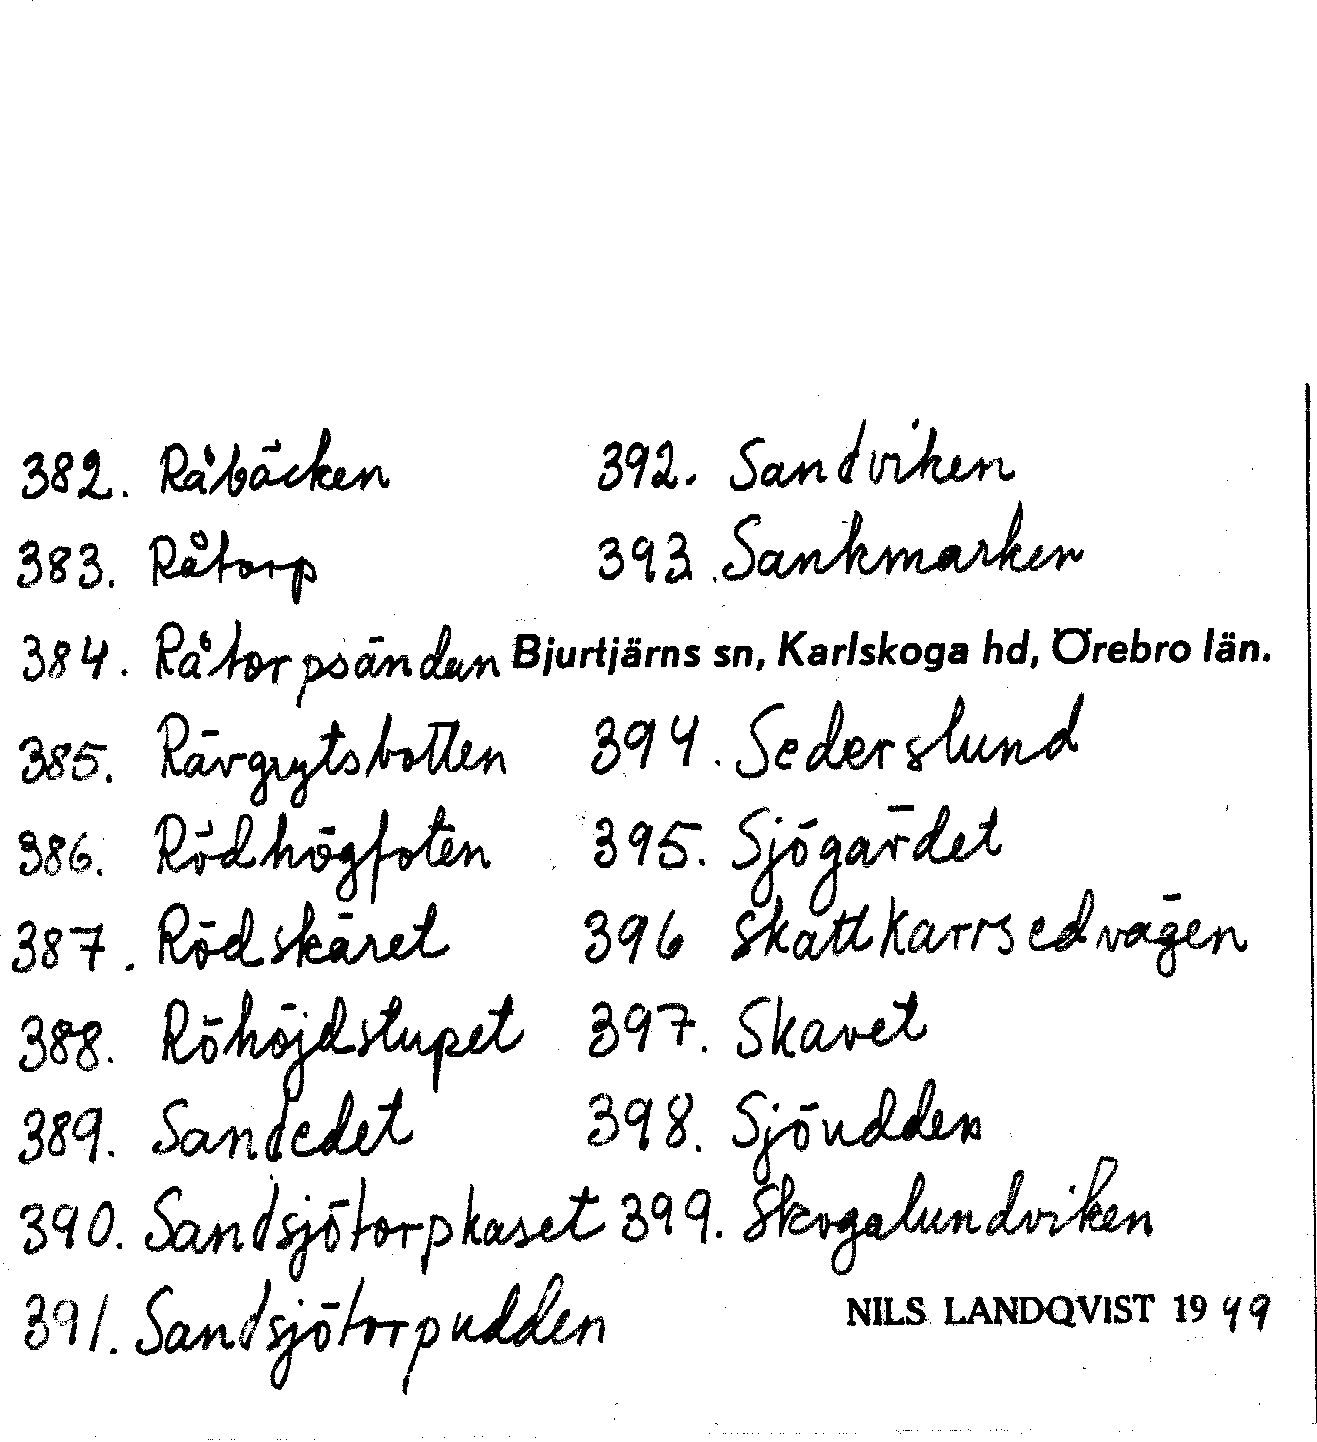 382. Råbäcken
383. Råtorp
384. Råtorpsänden
385. Rävgrytsbotten
386. Rödhögfoten
387. Rödskäret
388. Röhöjdstupet
389. Sandedet
390. Sandsjötorpkaset
391. Sandsjötorpudden
392. Sandviken
393. Sankmarken
Bjurtjärns sn, Karlskoga hd, Örebro län.
394. Sederslund
395. Sjögärdet
396 Skattkarrsedvägen
397. Skavet
398. Sjöudden
399. Skogalundviken
NILS LANDQVIST 1949